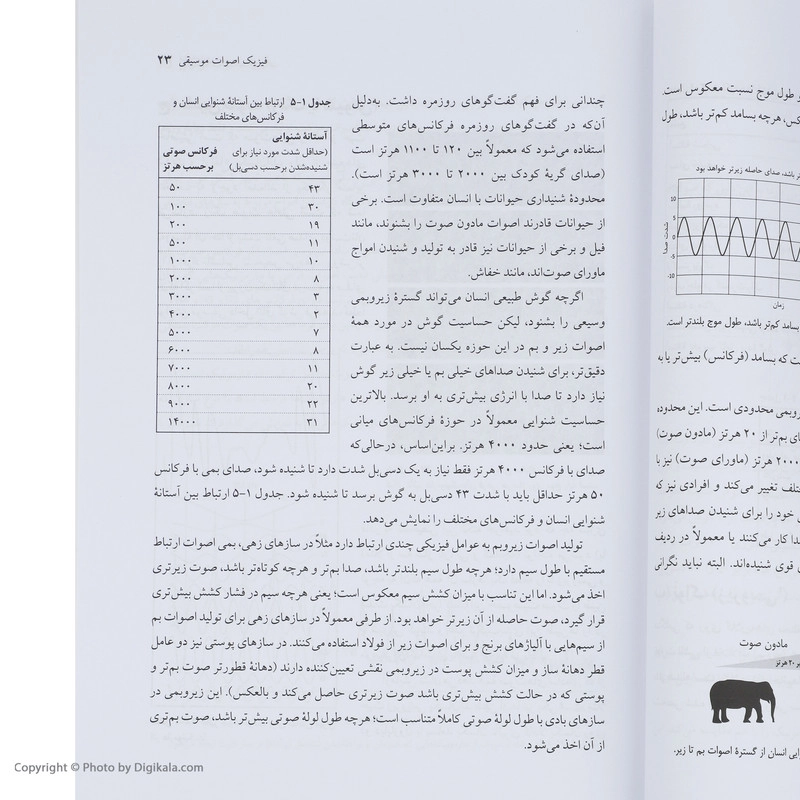 فیزیک اصوات موسیقی ۲۳
جدول ۱-۵ ارتباط بین آستانهٔ شنوایی انسان و
فرکانس‌های مختلف
آستانهٔ شنوایی
(حداقل شدت مورد نیاز برای
شنیده‌شدن برحسب دسی‌بل)
فرکانس صوتی
برحسب هرتز
۴۳ ۵۰
۳۰ ۱۰۰
۱۹ ۲۰۰
۱۱ ۵۰۰
۱۰ ۱۰۰۰
۸ ۲۰۰۰
۳ ۳۰۰۰
۲ ۴۰۰۰
۷ ۵۰۰۰
۸ ۶۰۰۰
۱۱ ۷۰۰۰
۲۰ ۸۰۰۰
۲۲ ۹۰۰۰
۳۱ ۱۴۰۰۰
چندانی برای فهم گفت‌گوهای روزمره داشت. به‌دلیل
آن‌که در گفت‌گوهای روزمره فرکانس‌های متوسطی
استفاده می‌شود که معمولاً بین ۱۲۰ تا ۱۱۰۰ هرتز است
(صدای گریهٔ کودک بین ۲۰۰۰ تا ۳۰۰۰ هرتز است).
محدودهٔ شنیداری حیوانات با انسان متفاوت است. برخی
از حیوانات قادرند اصوات مادون صوت را بشنوند، مانند
فیل و برخی از حیوانات نیز قادر به تولید و شنیدن امواج
ماورای صوت‌اند، مانند خفاش.
اگرچه گوش طبیعی انسان می‌تواند گسترهٔ زیروبمی
وسیعی را بشنود، لیکن حساسیت گوش در مورد همهٔ
اصوات زیر و بم در این حوزه یکسان نیست. به عبارت
دقیق‌تر، برای شنیدن صداهای خیلی بم یا خیلی زیر گوش
نیاز دارد تا صدا با انرژی بیش‌تری به او برسد. بالاترین
حساسیت شنوایی معمولاً در حوزهٔ فرکانس‌های میانی
است؛ یعنی حدود ۴۰۰۰ هرتز. براین‌اساس، درحالی‌که
صدای با فرکانس ۴۰۰۰ هرتز فقط نیاز به یک دسی‌بل شدت دارد تا شنیده شود، صدای بمی با فرکانس
۵۰ هرتز حداقل باید با شدت ۴۳ دسی‌بل به گوش برسد تا شنیده شود. جدول ۱-۵ ارتباط بین آستانهٔ
شنوایی انسان و فرکانس‌های مختلف را نمایش می‌دهد.
تولید اصوات زیروبم به عوامل فیزیکی چندی ارتباط دارد مثلاً در سازهای زهی، بمی اصوات ارتباط
مستقیم با طول سیم دارد؛ هرچه طول سیم بلندتر باشد، صدا بم‌تر و هرچه کوتاه‌تر باشد، صوت زیرتری
اخذ می‌شود. اما این تناسب با میزان کشش سیم معکوس است؛ یعنی هرچه سیم در فشار کشش بیش‌تری
قرار گیرد، صوت حاصله از آن زیرتر خواهد بود. از طرفی معمولاً در سازهای زهی برای تولید اصوات بم
از سیم‌هایی با آلیاژهای برنج و برای اصوات زیر از فولاد استفاده می‌کنند. در سازهای پوستی نیز دو عامل
قطر دهانهٔ ساز و میزان کشش پوست در زیروبمی نقشی تعیین‌کننده دارند (دهانهٔ قطورتر صوت بم‌تر و
پوستی که در حالت کشش بیش‌تری باشد صوت زیرتری حاصل می‌کند و بالعکس). این زیروبمی در
سازهای بادی با طول لولهٔ صوتی کاملاً متناسب است؛ هرچه طول لولهٔ صوتی بیش‌تر باشد، صوت بم‌تری
از آن اخذ می‌شود.
و طول موج نسبت معکوس است.
هرچه بسامد کم‌تر باشد، طول
باشد، صدای حاصله زیرتر خواهد بود
شدت صدا
10
5
0
-5
-10
زمان
بسامد کم‌تر باشد، طول موج بلندتر است.
که بسامد (فرکانس) بیش‌تر یا به
زیروبمی محدودی است. این محدوده
بم‌تر از ۲۰ هرتز (مادون صوت)
هرتز (ماورای صوت) نیز با
تغییر می‌کند و افرادی نیز که
خود را برای شنیدن صداهای زیر
کار می‌کنند یا معمولاً در ردیف
قوی شنیده‌اند. البته نباید نگرانی
مادون صوت
۲۰ هرتز
انسان از گسترهٔ اصوات بم تا زیر.
Copyright © Photo by Digikala.com